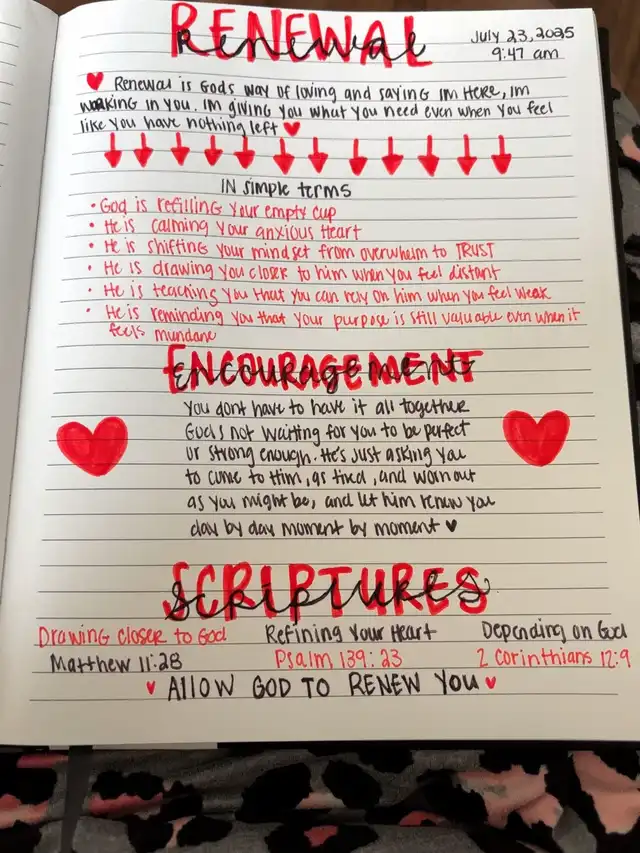 RENEWAL
Renewal
July 23, 2025
9:47 am
♥ Renewal is Gods way of loving and saying Im Here, Im
working in you. Im giving you what you need even when you feel
like you have nothing left ♥
IN simple terms
• God is refilling your empty cup
• He is calming your anxious Heart
• He is shifting your mindset from overwhelm to TRUST
• He is drawing you closer to him when you feel distant
• He is teaching you that you can rely on him when you feel weak
• He is reminding you that your purpose is still valuable even when it
feels mundane
ENCOURAGEMENT
Encouragement
You dont have to have it all together
God's not waiting for you to be perfect
or strong enough. He's just asking you
to come to Him, as tired, and worn out
as you might be, and let him renew you
day by day moment by moment ♥
SCRIPTURES
Scriptures
Drawing closer to God Refining Your Heart Depending on God
Matthew 11:28 Psalm 139:23 2 Corinthians 12:9
♥ ALLOW GOD TO RENEW YOU ♥